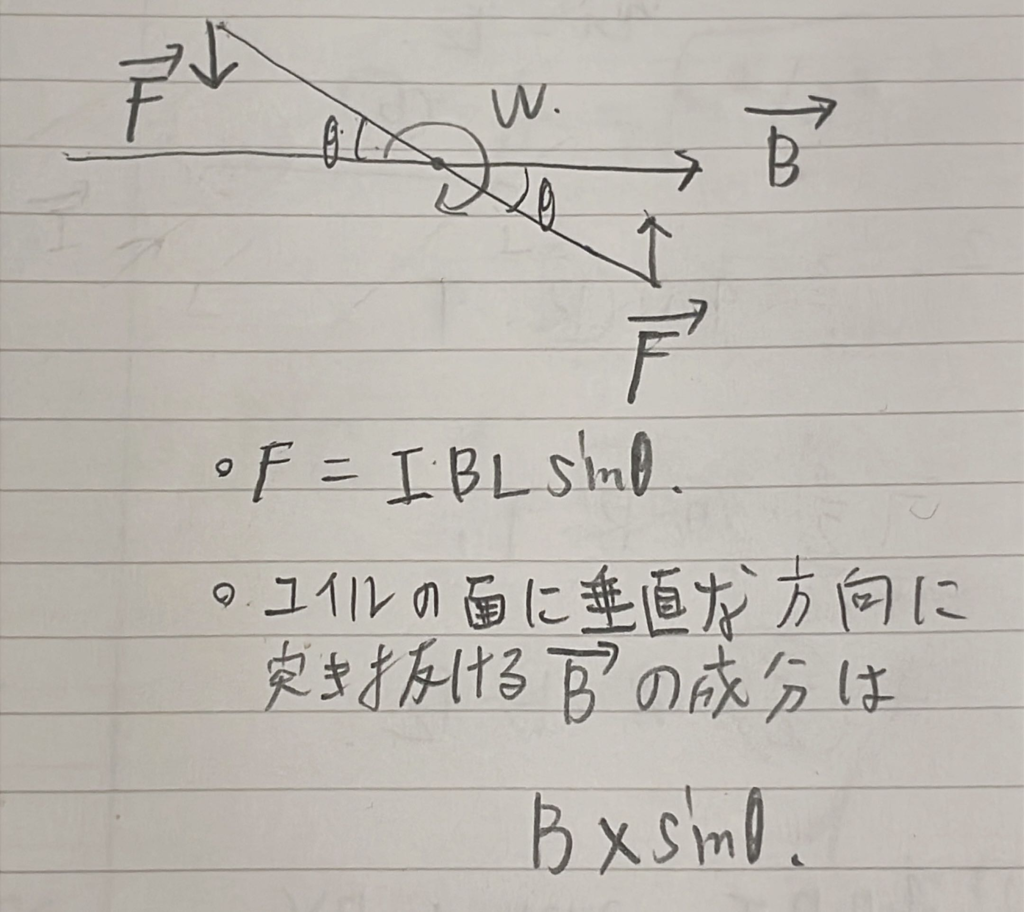 F
θ
W.
B
θ
F
。F = I・BL sinθ.
。コイルの面に垂直な方向に
突き抜けるBの成分は
B×sinθ.